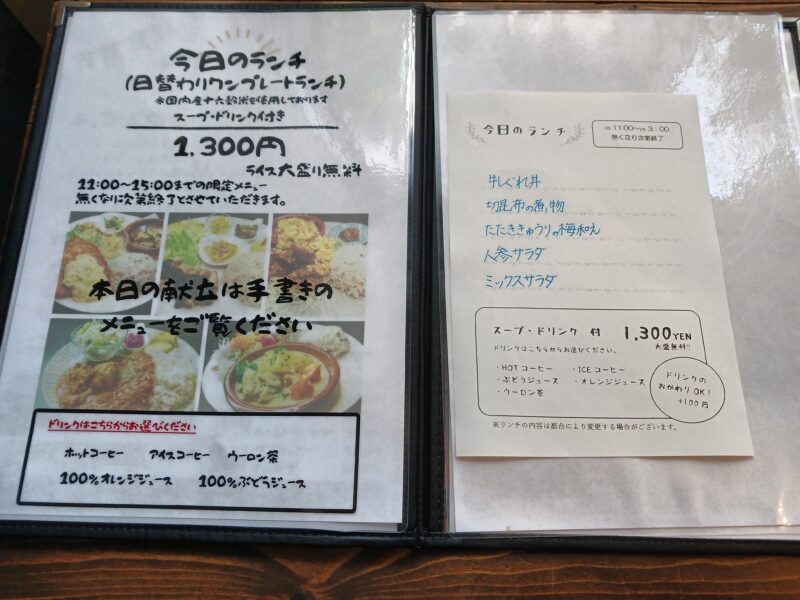 今日のランチ
(日替わりワンプレートランチ)
※国内産十六穀米を使用しております
スープ・ドリンク付き
1,300円
ライス大盛り無料
11:00〜15:00までの限定メニュー
無くなり次第終了とさせていただきます。
本日の献立は手書きの
メニューをご覧ください
ドリンクはこちらからお選びください
ホットコーヒー アイスコーヒー ウーロン茶
100%オレンジジュース 100%ぶどうジュース
今日のランチ
AM 11:00〜PM 3:00
無くなり次第終了
牛しぐれ丼
切昆布の煮物
たたききゅうりの梅和え
人参サラダ
ミックスサラダ
スープ・ドリンク 付 1,300YEN
大盛無料!!
ドリンクはこちらからお選びください。
・HOTコーヒー ・ICEコーヒー
・ぶどうジュース ・オレンジジュース
・ウーロン茶
ドリンクの
おかわりOK!
+100円
※ランチの内容は都合により変更する場合がございます。